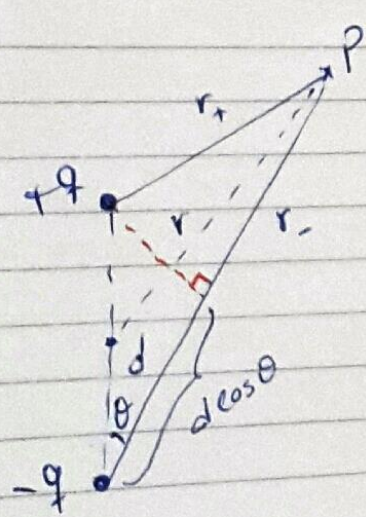 P
r₊
+q
r
r₋
d
θ
d cosθ
-q